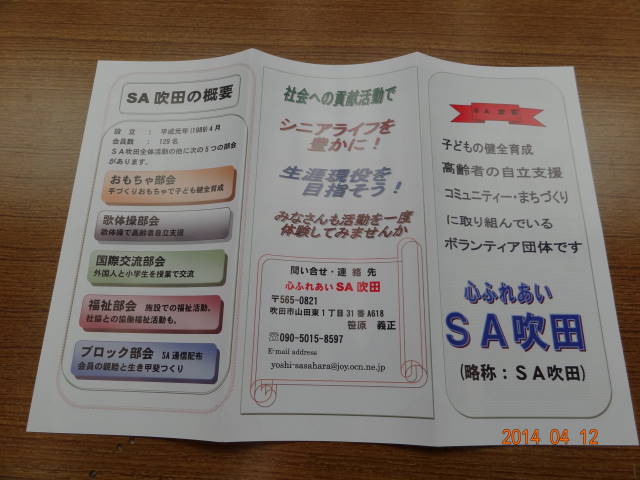 SA吹田の概要
設 立 : 平成元年(1989)4月
会員数 : 129名
SA吹田全体活動の他に次の5つの部会
があります。
おもちゃ部会
手づくりおもちゃで子ども健全育成
歌体操部会
歌体操で高齢者自立支援
国際交流部会
外国人と小学生を授業で交流
福祉部会 施設での福祉活動。
社協との協働福祉活動も。
ブロック部会 SA通信配布
会員の親睦と生き甲斐つくり
社会への貢献活動で
シニアライフを
豊かに!
生涯現役を
目指そう!
みなさんも活動を一度
体験してみませんか
問い合せ・連 絡 先
心ふれあい SA 吹田
〒565-0821
吹田市山田東1丁目31番A618
笹原 義正
☏090-5015-8597
E-mail address
yoshi-sasahara@joy.ocn.ne.jp
SA
子どもの健全育成
高齢者の自立支援
コミュニティー・まちづくり
に取り組んでいる
ボランティア団体です
心ふれあい
SA吹田
(略称:SA吹田)
2014 04 12